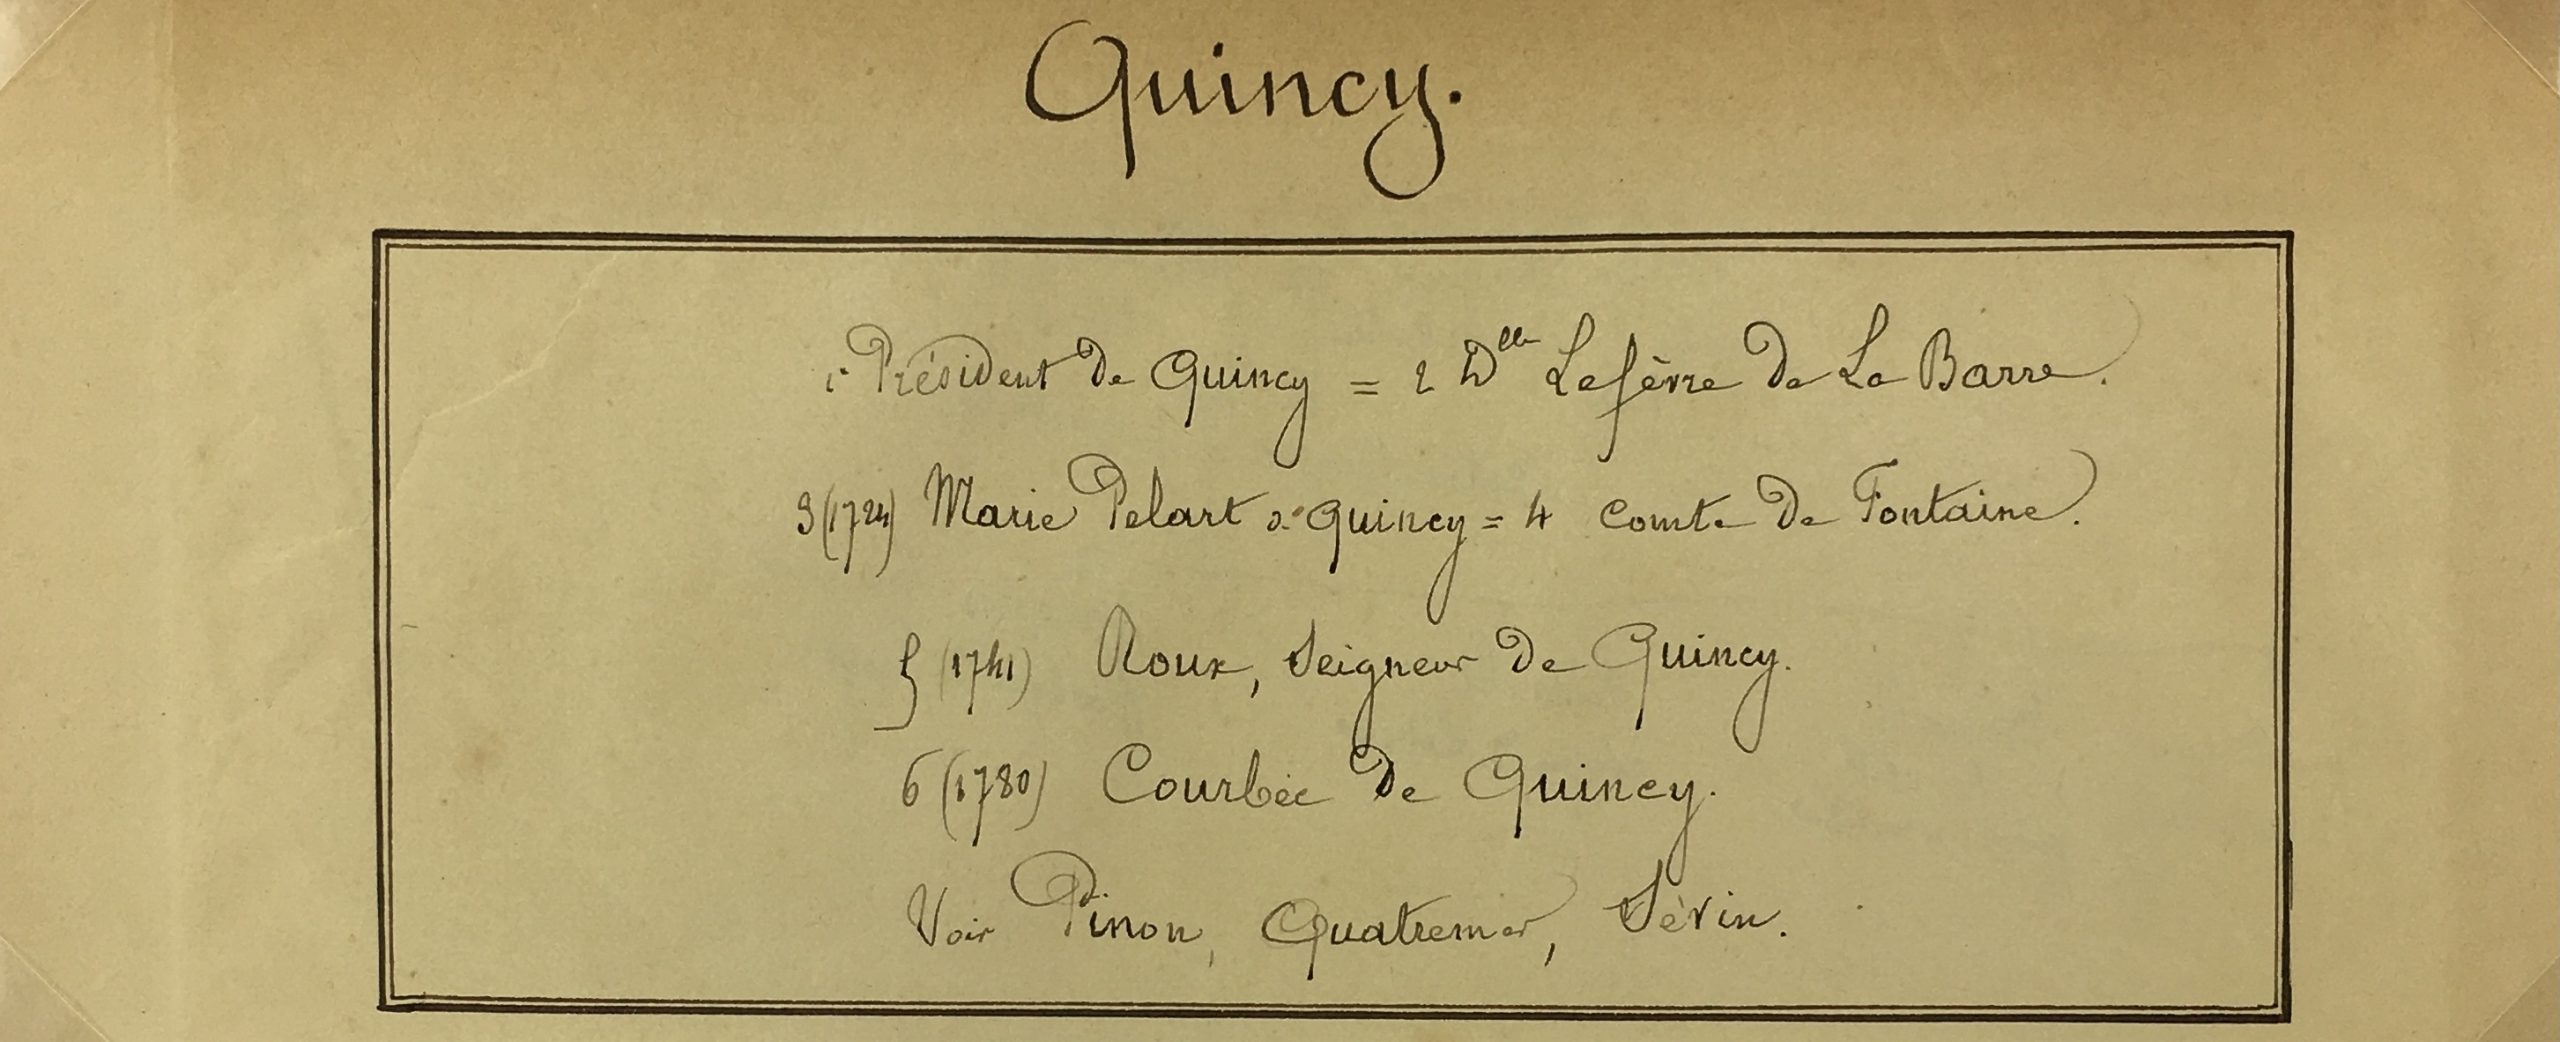 Quincy.
1 Président de Quincy = 2 Dlle Lefèvre de La Barre.
3 (1724) Marie Pelart de Quincy = 4 Comte de Fontaine.
5 (1741) Roux, Seigneur de Quincy.
6 (1780) Courbée de Quincy.
Voir Pinon, Quatremer, Sévin.